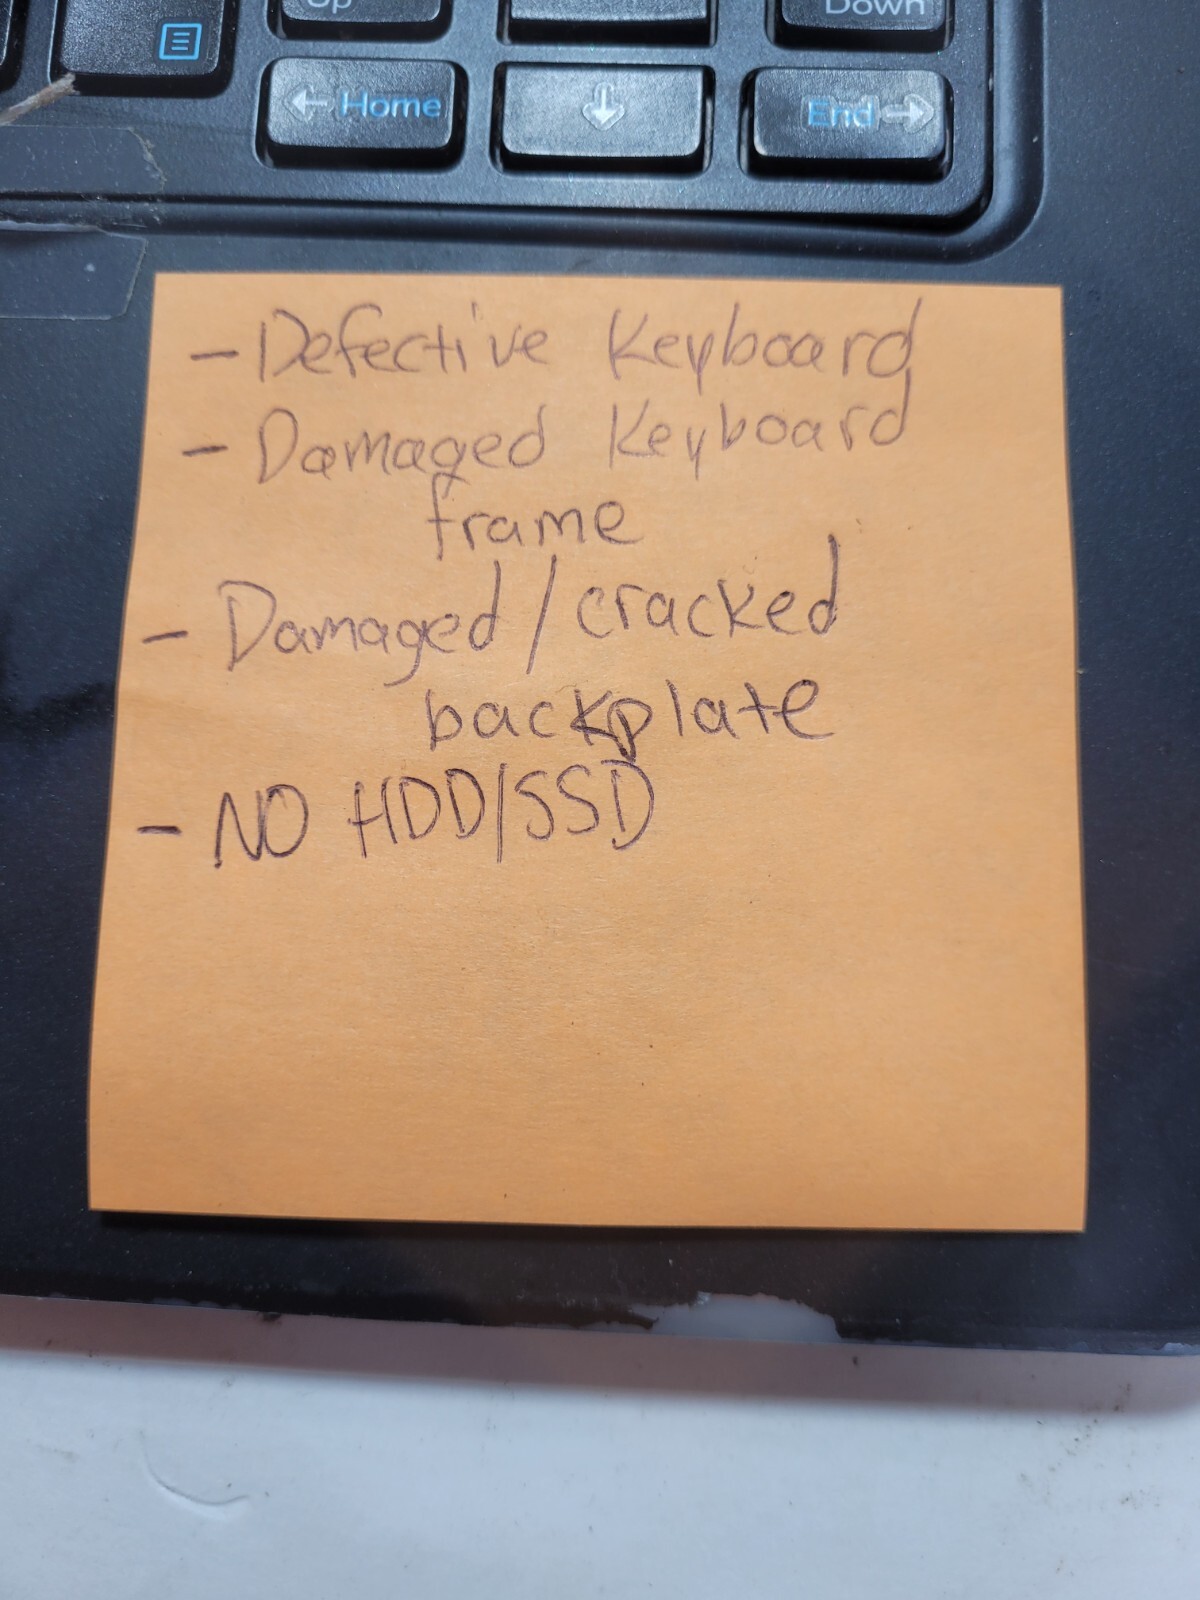 Up
Down
Home
End
- Defective Keyboard
- Damaged Keyboard
frame
- Damaged/cracked
backplate
- NO HDD/SSD